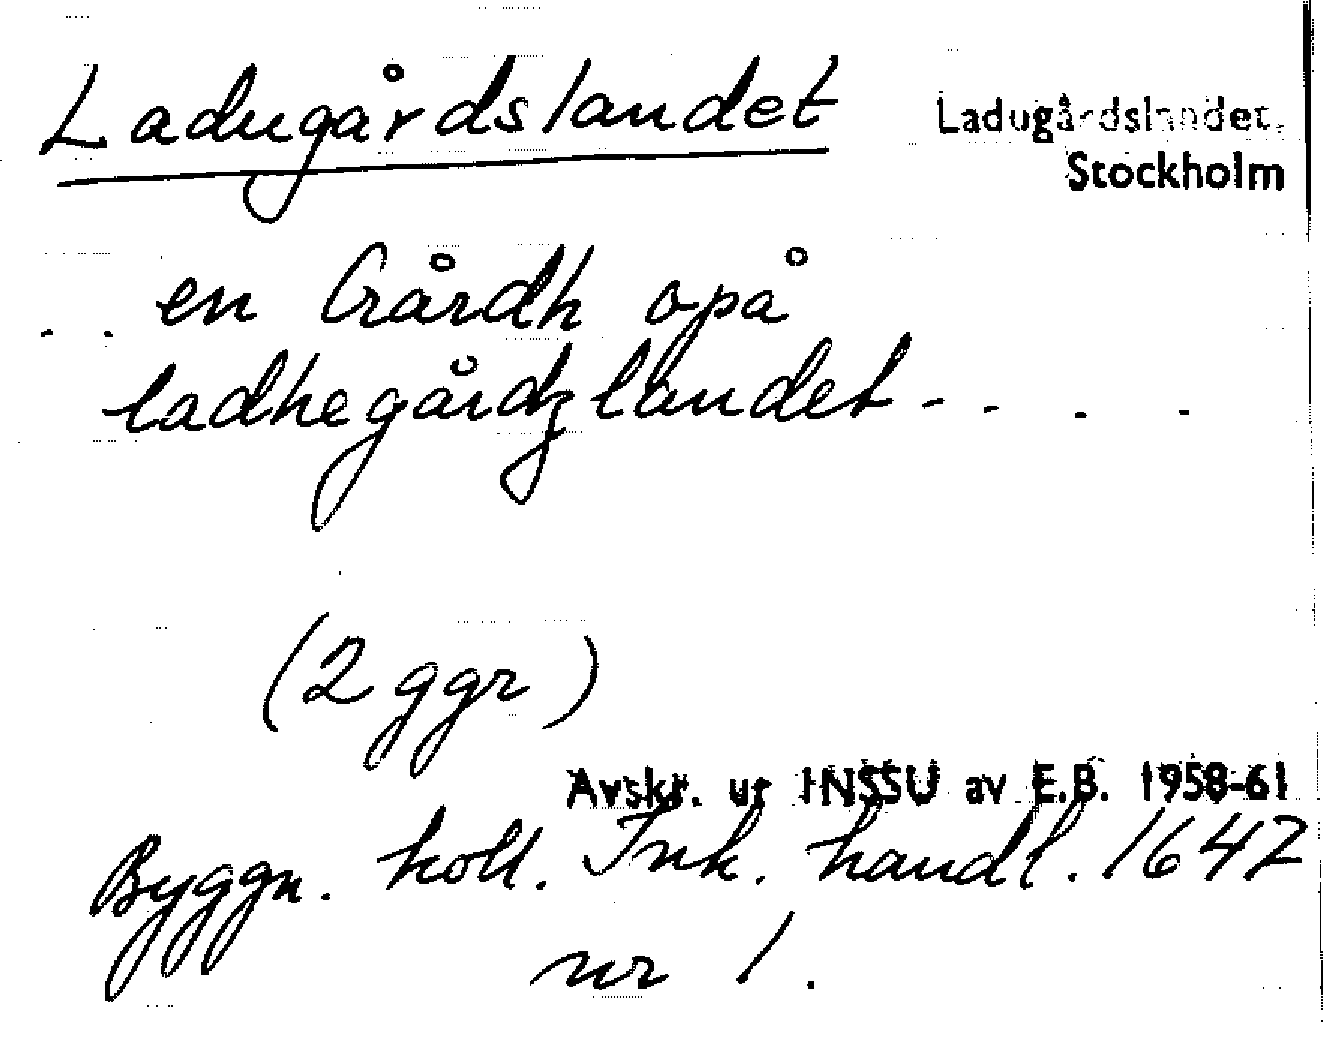 Ladugårdslandet
Ladugårdslandet.
Stockholm
.. en Gårdh opå
ladhegårdzlandet - - . .
(2 ggr)
Avskr. ur INSSU av E.B. 1958-61
Byggn. koll. Ink. handl. 1647
nr 1.